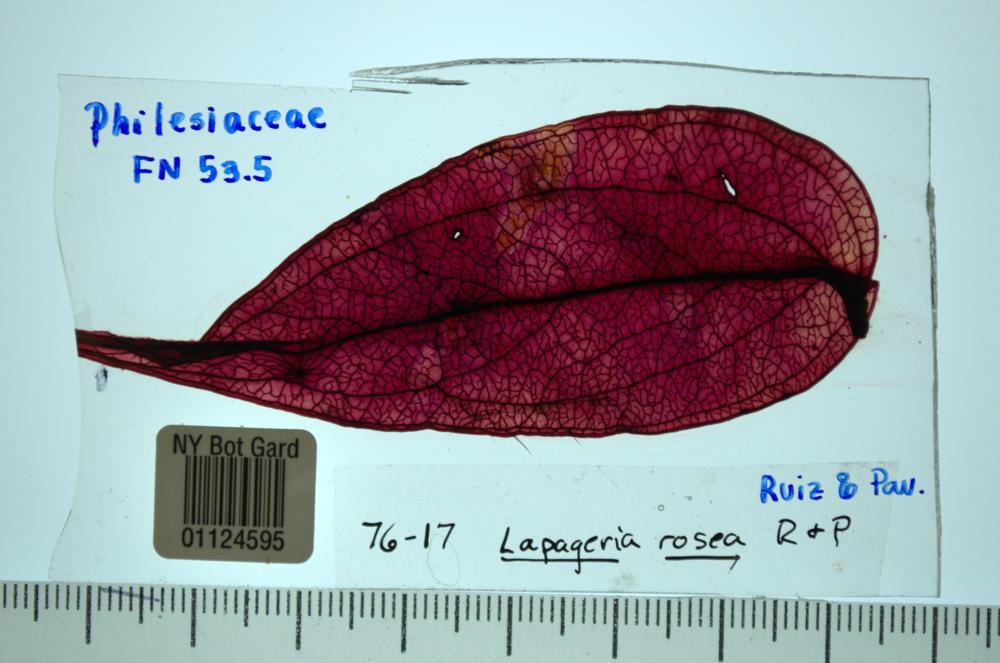 Philesiaceae
FN 53.5
NY Bot Gard
01124595
Ruiz & Pav.
76-17 Lapageria rosea R & P